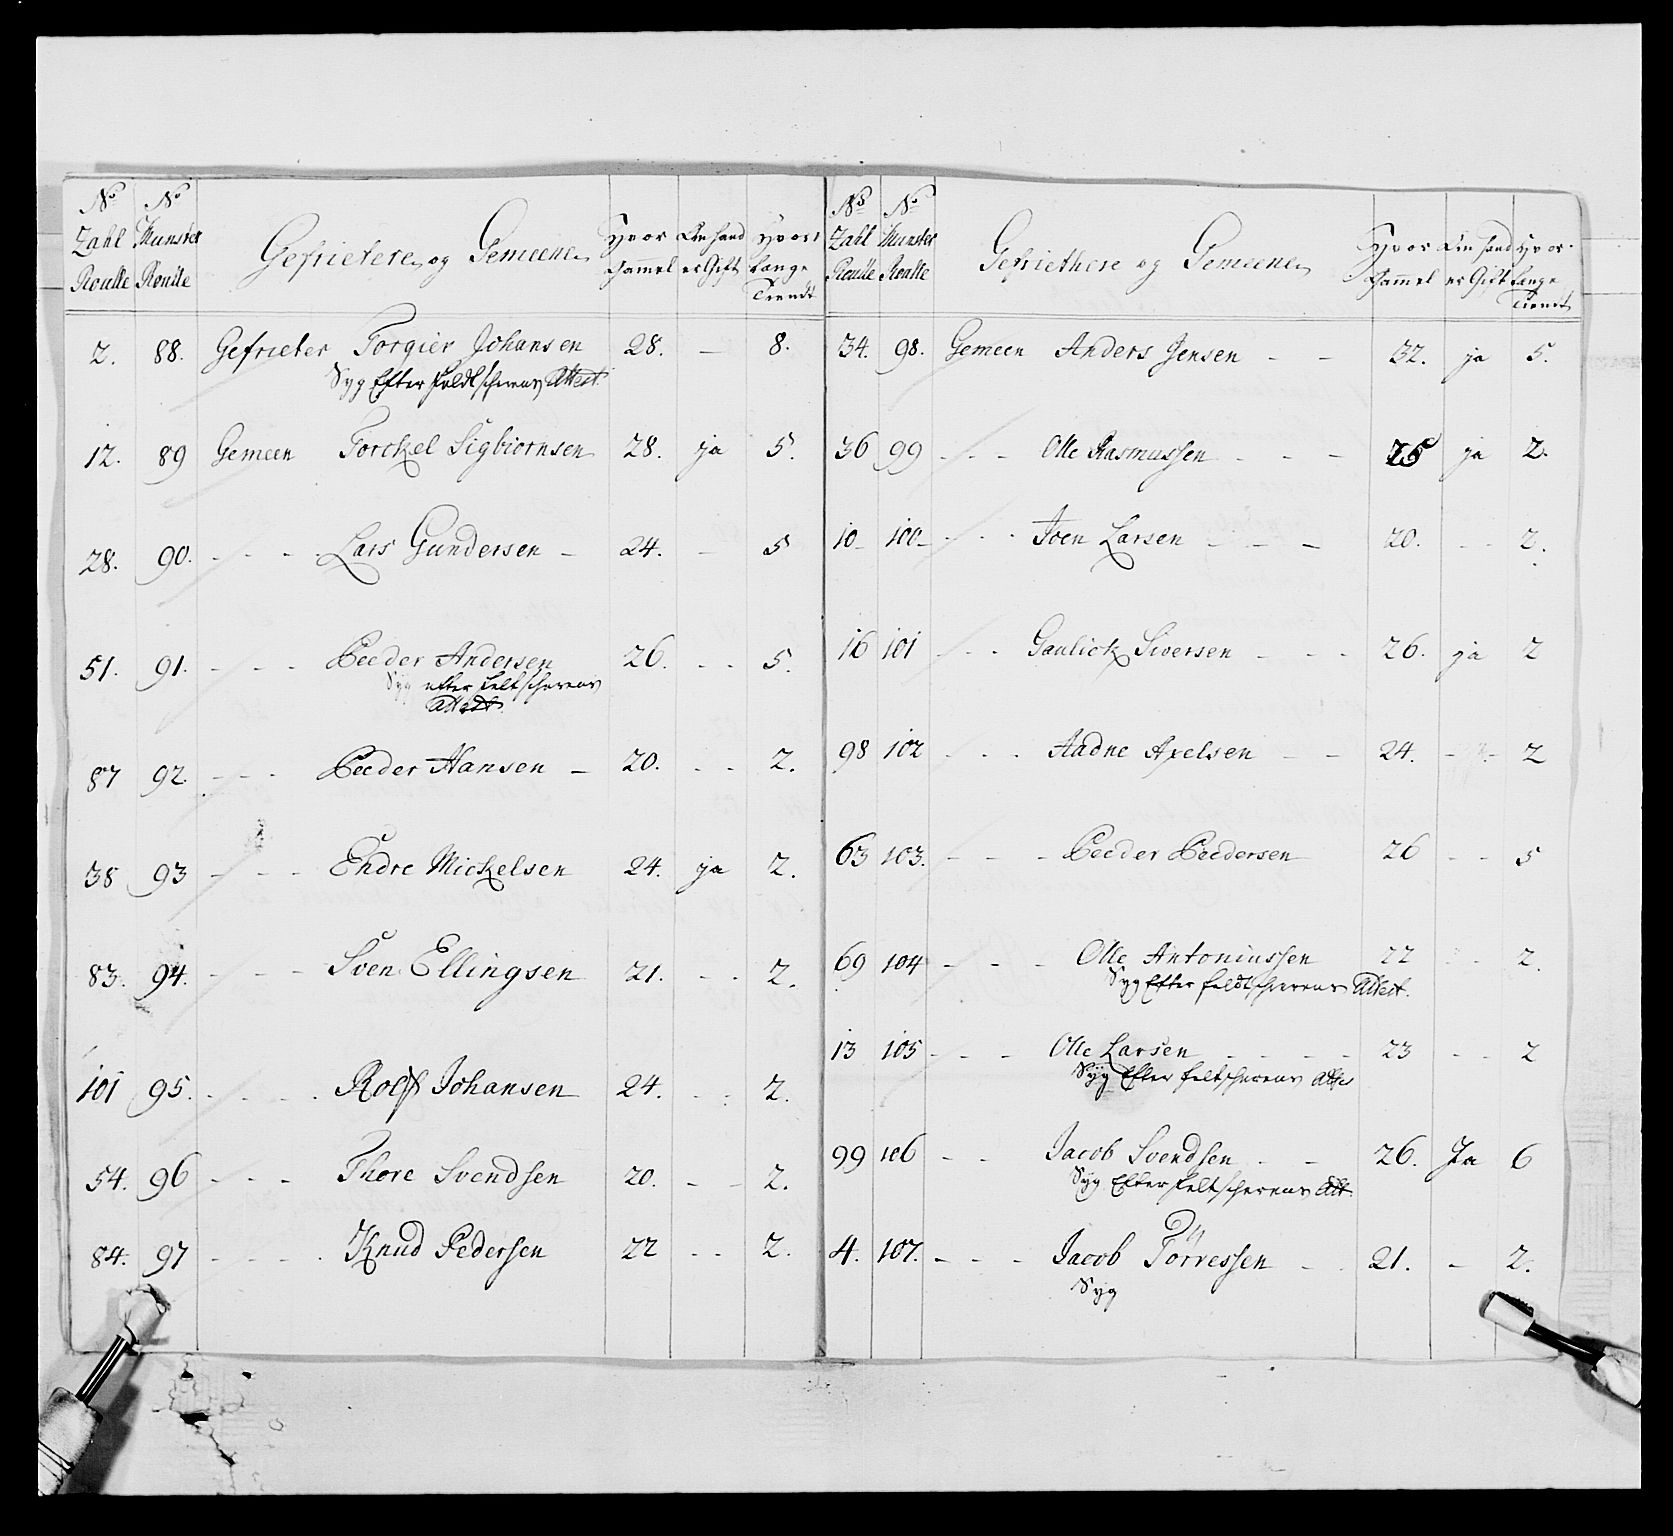 No No
Zahl Munster Gefrietere og Gemeene Hvor Om hand Hvor
Roulle Roulle Gammel er Gift Længe
Tiendt
2. 88. Gefrieter Torgier Johansen 28. — 8.
Syg Efter Feldtscherens Attest.
12. 89 Gemeen Torckel Sigbiornsen 28. ja 5.
28. 90. - - - Lars Gundersen — 24. — 5
51. 91. - - - Peeder Andersen 26. - - 5.
Syg efter Feltscherens
Attest
87 92 - - - Peeder Hansen — 20. - - 2.
38 93 - - - Endre Mickelsen 24. ja 2.
83. 94. - - - Sven Ellingsen 21. - - 2.
101 95. - - - Rolf Johansen 24. - - 2.
54. 96 - - - Thore Svendsen 20. - - 2.
84. 97 - - - Knud Pedersen 22 - - 2.
No No
Zahl Munster Gefriethere og Gemeene Hvor Om hand Hvor
Roulle Roulle Gammel er Gift Længe
Tient
34. 98. Gemeen Anders Jensen - - 32. ja 5.
36 99 - - - Olle Rasmussen - - - 25 ja 2.
10 100 - - - Joen Larsen - - - 20. - - 2.
16 101 - - - Gaulick Siversen - - - 26. ja 2
98 102 - - - Aadne Axelsen - - 24. - - 2
63 103. - - - Peeder Peedersen 26 - - 5
69 104 - - - Olle Antoniussen 22 - - 2.
Syg Efter feldtscherens Attest.
13 105 - - - Olle Larsen - - - - 23 - - 2
Syg Efter feltscherens Attes
99 106 - - Jacob Svendsen - - 26. Ja 6
Syg Efter feltscherens Att
4. 107. - - - Jacob Torressen - - 21. - 2.
Syg